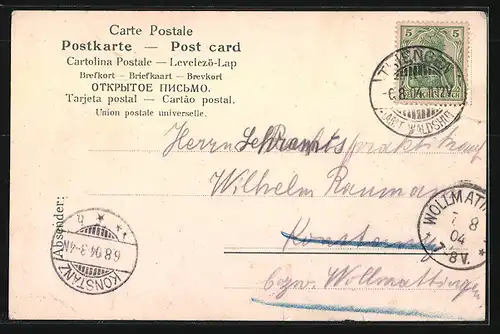 Carte Postale
Postkarte — Post card
Cartolina Postale — Levelező-Lap
Brefkort — Briefkaart — Brevkort
ОТКРЫТОЕ ПИСЬМО.
Tarjeta postal — Cartão postal.
Union postale universelle.
5 5
TIENGEN
6.8.04.11-12V.
(AMT WALDSHUT)
Herrn
Wilhelm
Konstanz
bzw. Wollmatingen
WOLLMATIN
7 8
04
7-8V.
Absender:
6.8.04.3-4N
KONSTANZ